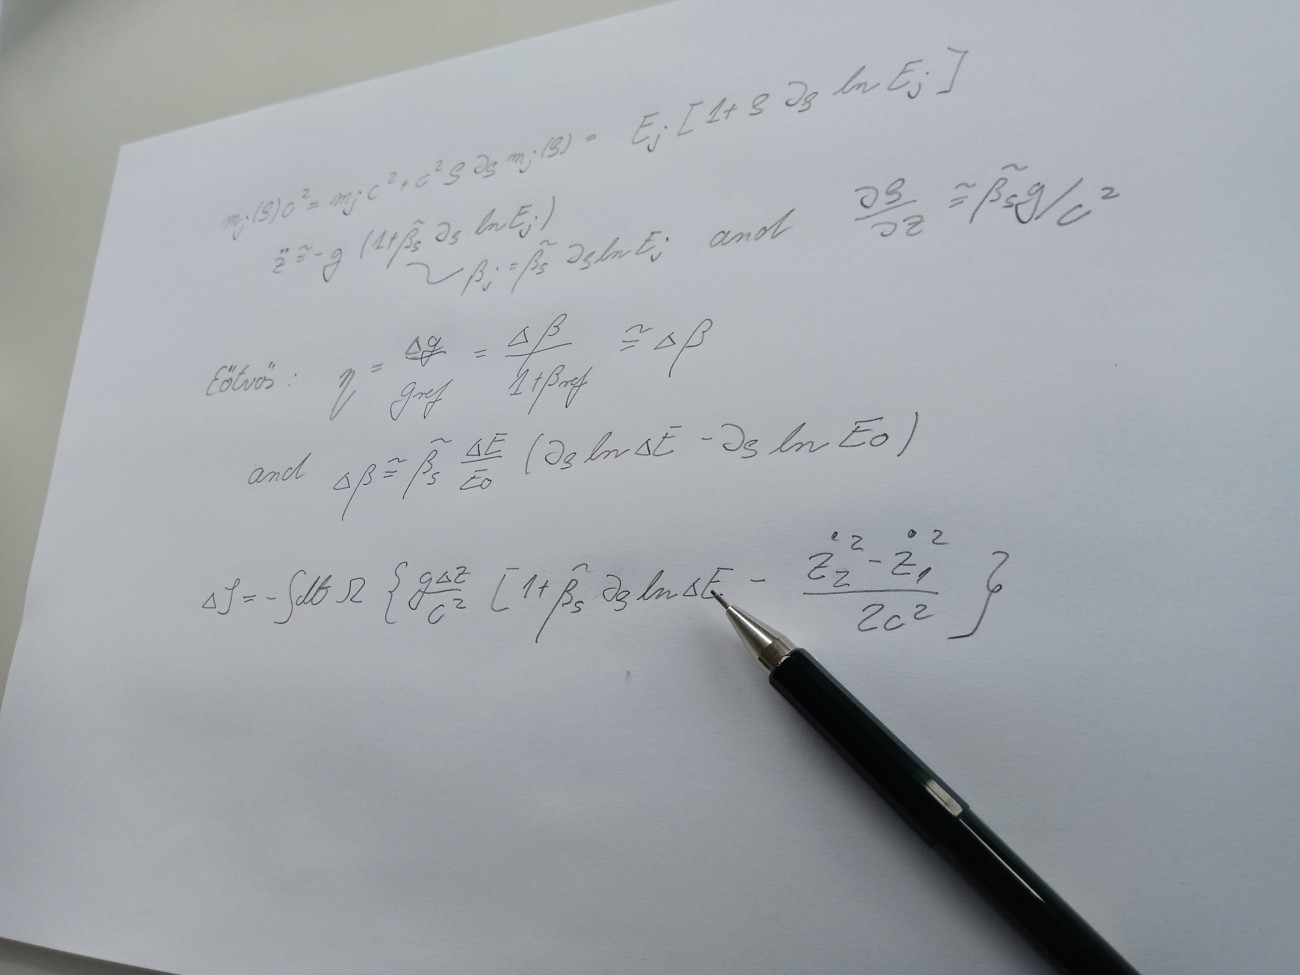 mⱼ(ϱ)c² = mⱼc² + c²ϱ ∂ϱ mⱼ(ϱ) = Eⱼ [1 + ϱ ∂ϱ ln Eⱼ]
z̈ ≅ -g (1 + β̃s ∂ϱ ln Eⱼ)
βⱼ = β̃s ∂ϱ ln Eⱼ and ∂ϱ/∂z ≅ β̃s g/c²
Eötvös: η = Δg/gref = Δβ/(1+βref) ≅ Δβ
and Δβ ≅ β̃s ΔE/E0 (∂ϱ ln ΔE - ∂ϱ ln E0)
Δφ = -∫dt Ω { gΔz/c² [1 + β̃s ∂ϱ ln ΔE - (ż2² - ż1²)/2c² }